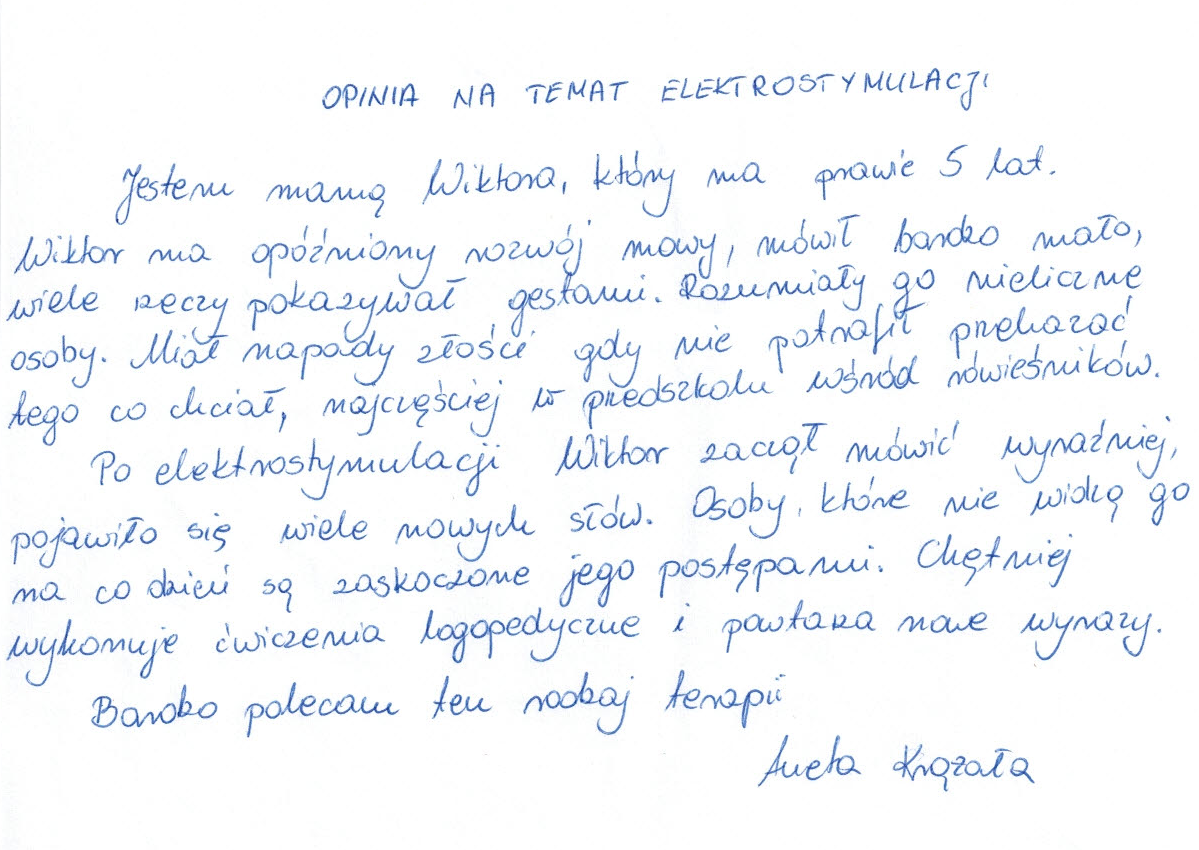 OPINIA NA TEMAT ELEKTROSTYMULACJI
Jestem mamą Wiktora, który ma prawie 5 lat.
Wiktor ma opóźniony rozwój mowy, mówił bardzo mało,
wiele rzeczy pokazywał gestami. Rozumiały go nieliczne
osoby. Miał napady złości gdy nie potrafił przekazać
tego co chciał, najczęściej w przedszkolu wśród rówieśników.
Po elektrostymulacji Wiktor zaczął mówić wyraźniej,
pojawiło się wiele nowych słów. Osoby, które nie widzą go
na co dzień są zaskoczone jego postępami. Chętniej
wykonuje ćwiczenia logopedyczne i powtarza nowe wyrazy.
Bardzo polecam ten rodzaj terapii
Aneta Krązała